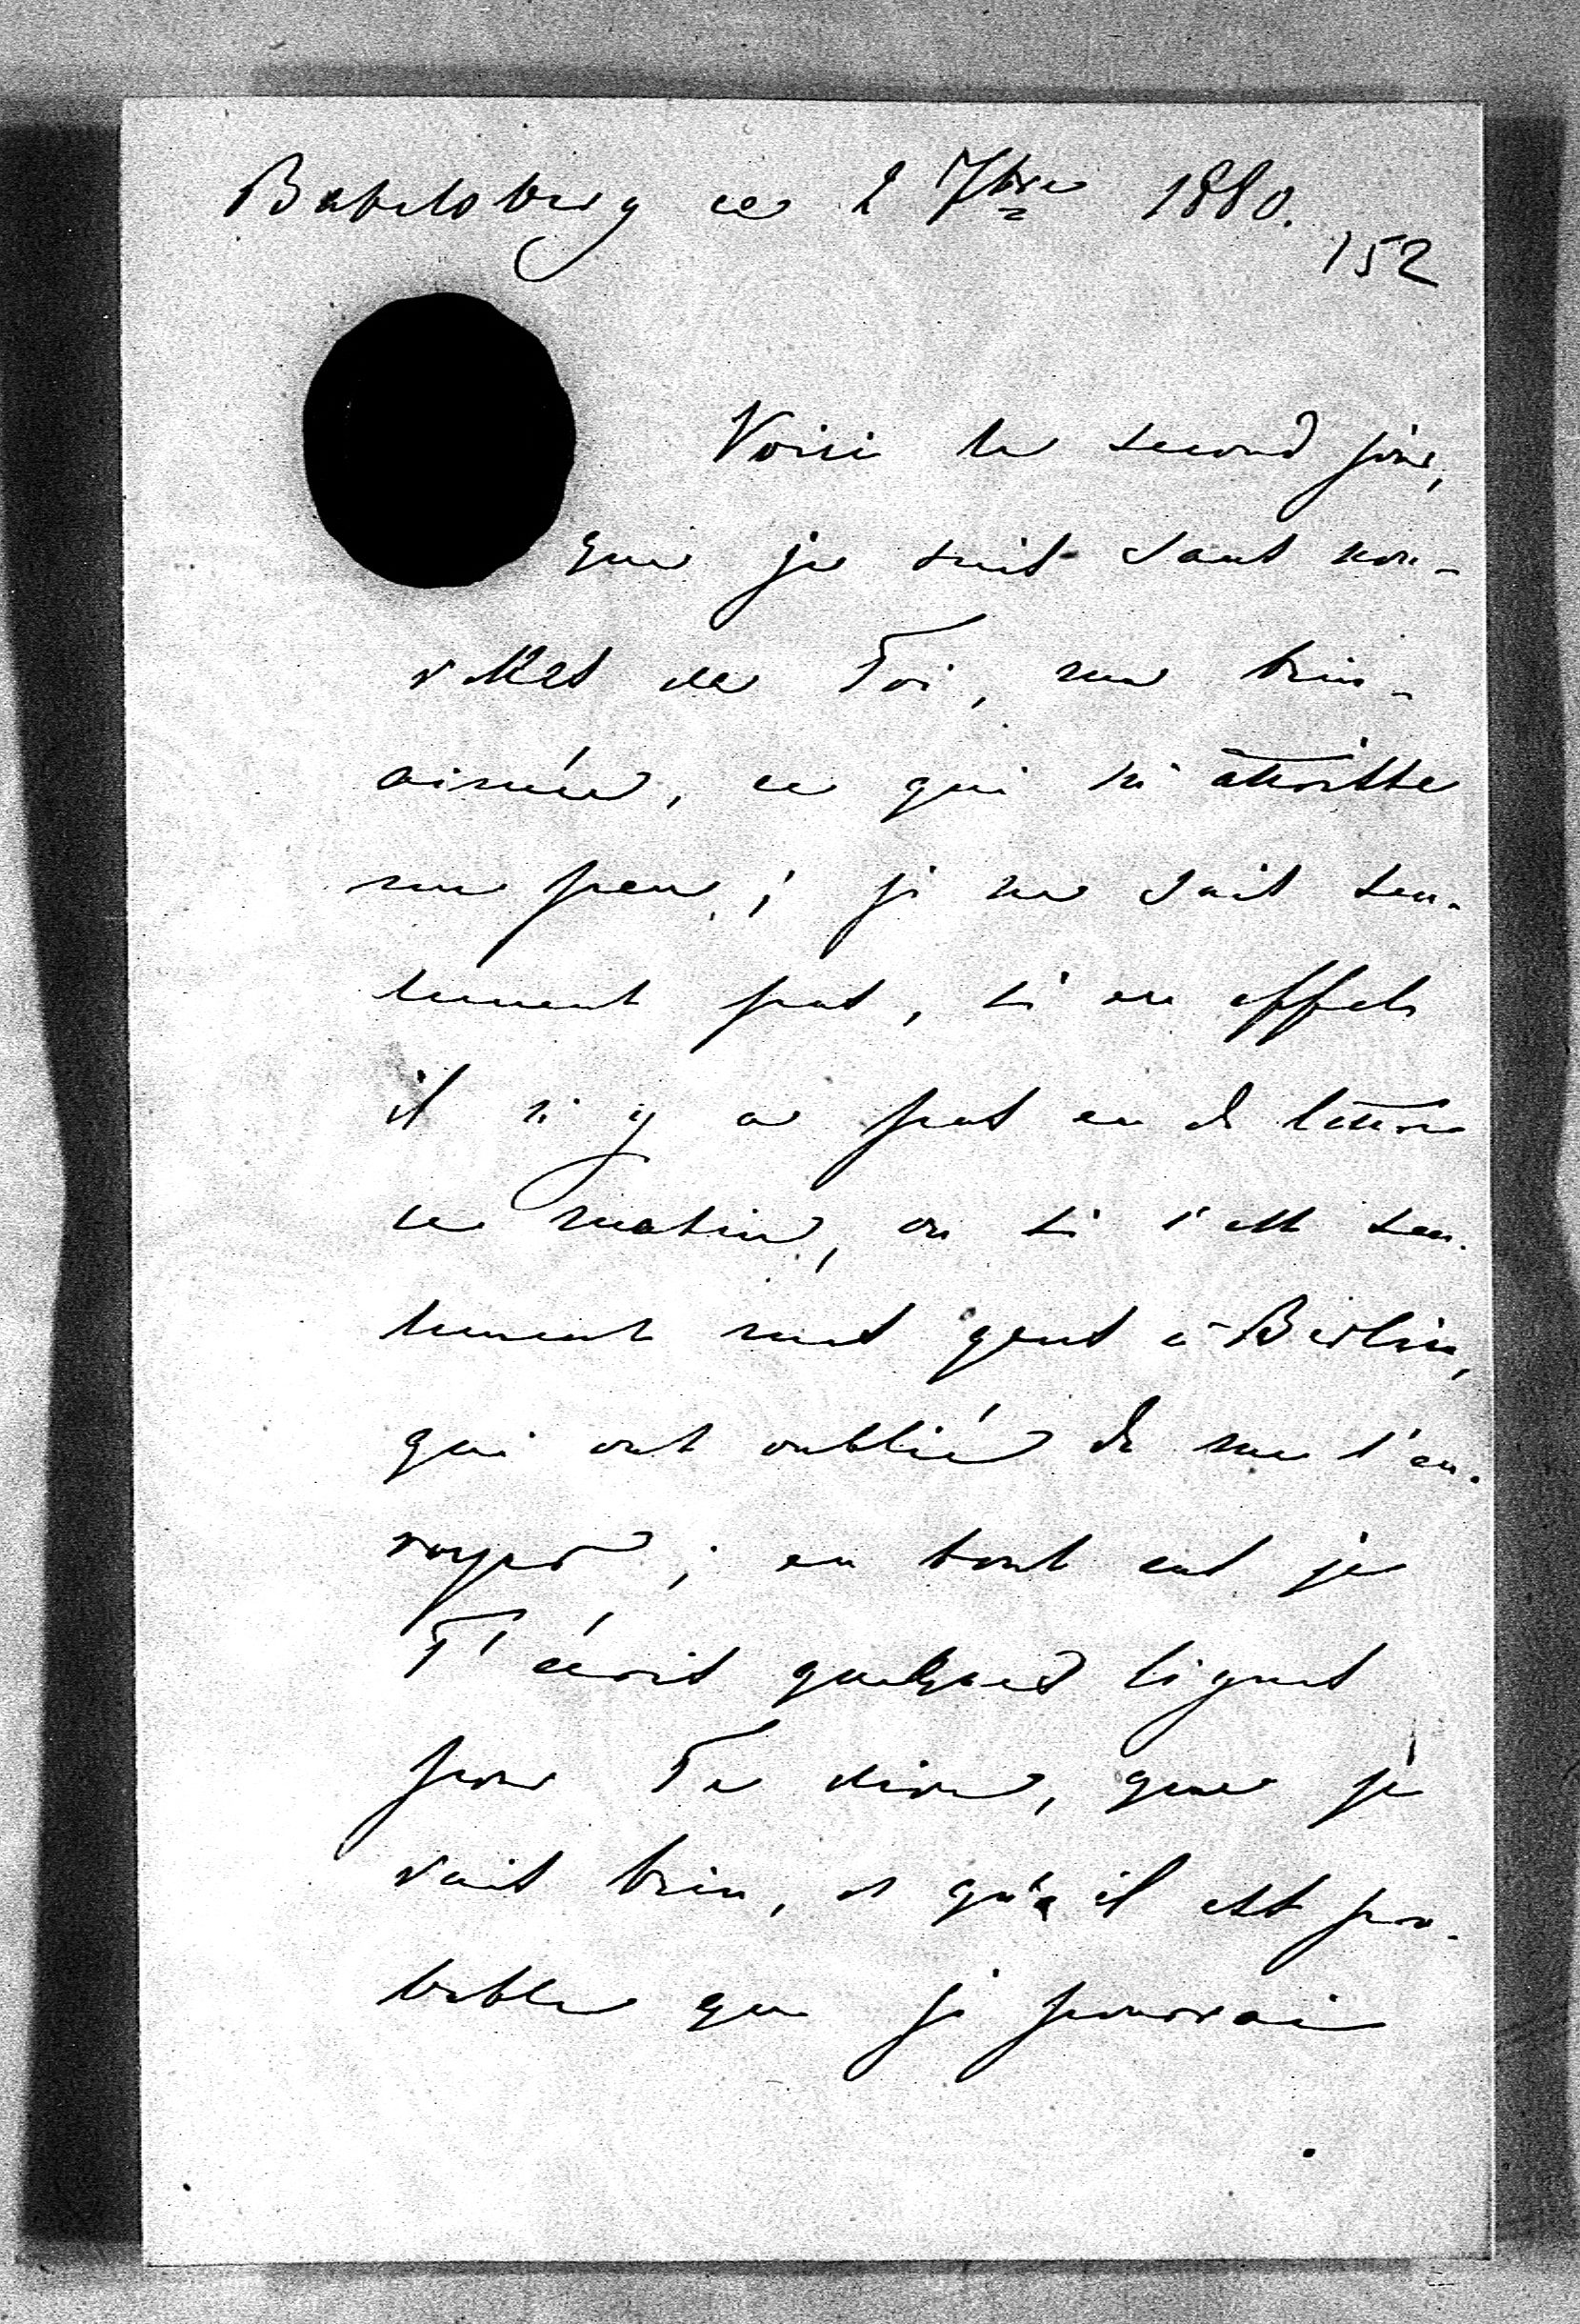 Babelsberg ce 2 7bre 1880.
152
Voici le second jour,
que je suis sans nou-
velles de Toi, ma bien-
aimée, ce qui m'attriste
un peu; je ne sais seu-
lement pas, si en effet
il n'y a pas eu de lettre
ce matin, ou si c'est seu-
lement mes gens à Berlin,
qui ont oublié de me l'en-
voyer; en tout cas je
T'écris quelques lignes
pour Te dire, que je
vais bien, et qu'il est pro-
bable que je pourrai